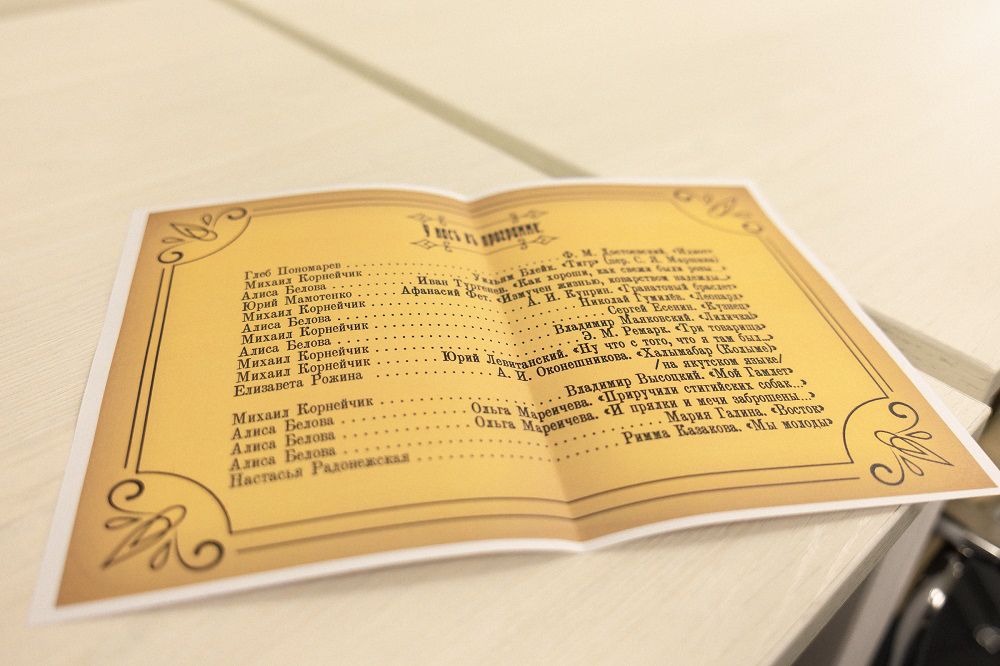 У насъ въ программе
Глеб Пономарев ..... Ф. М. Достоевский. «Идиот»
Михаил Корнейчик ..... Уильям Блейк. «Тигр» (пер. С. Я. Маршака)
Алиса Белова ..... Иван Тургенев. «Как хороши, как свежи были розы...»
Юрий Мамотенко ..... Афанасий Фет. «Измучен жизнью, коварством надежды...»
Михаил Корнейчик ..... А. И. Куприн. «Гранатовый браслет»
Алиса Белова ..... Николай Гумилёв. «Леопард»
Михаил Корнейчик ..... Сергей Есенин. «Кузнец»
Алиса Белова ..... Владимир Маяковский. «Лиличка!»
Михаил Корнейчик ..... Э. М. Ремарк. «Три товарища»
Михаил Корнейчик ..... Юрий Левитанский. «Ну что с того, что я там был...»
Елизавета Рожина ..... А. И. Оконешникова. «Халымабар (Колыме)»
/на якутском языке/
Михаил Корнейчик ..... Владимир Высоцкий. «Мой Гамлет»
Алиса Белова ..... Ольга Мареичева. «Приручили стигийских собак...»
Алиса Белова ..... Ольга Мареичева. «И прялки и мечи заброшены...»
Алиса Белова ..... Мария Галина. «Восток»
Настасья Радонежская ..... Римма Казакова. «Мы молоды»